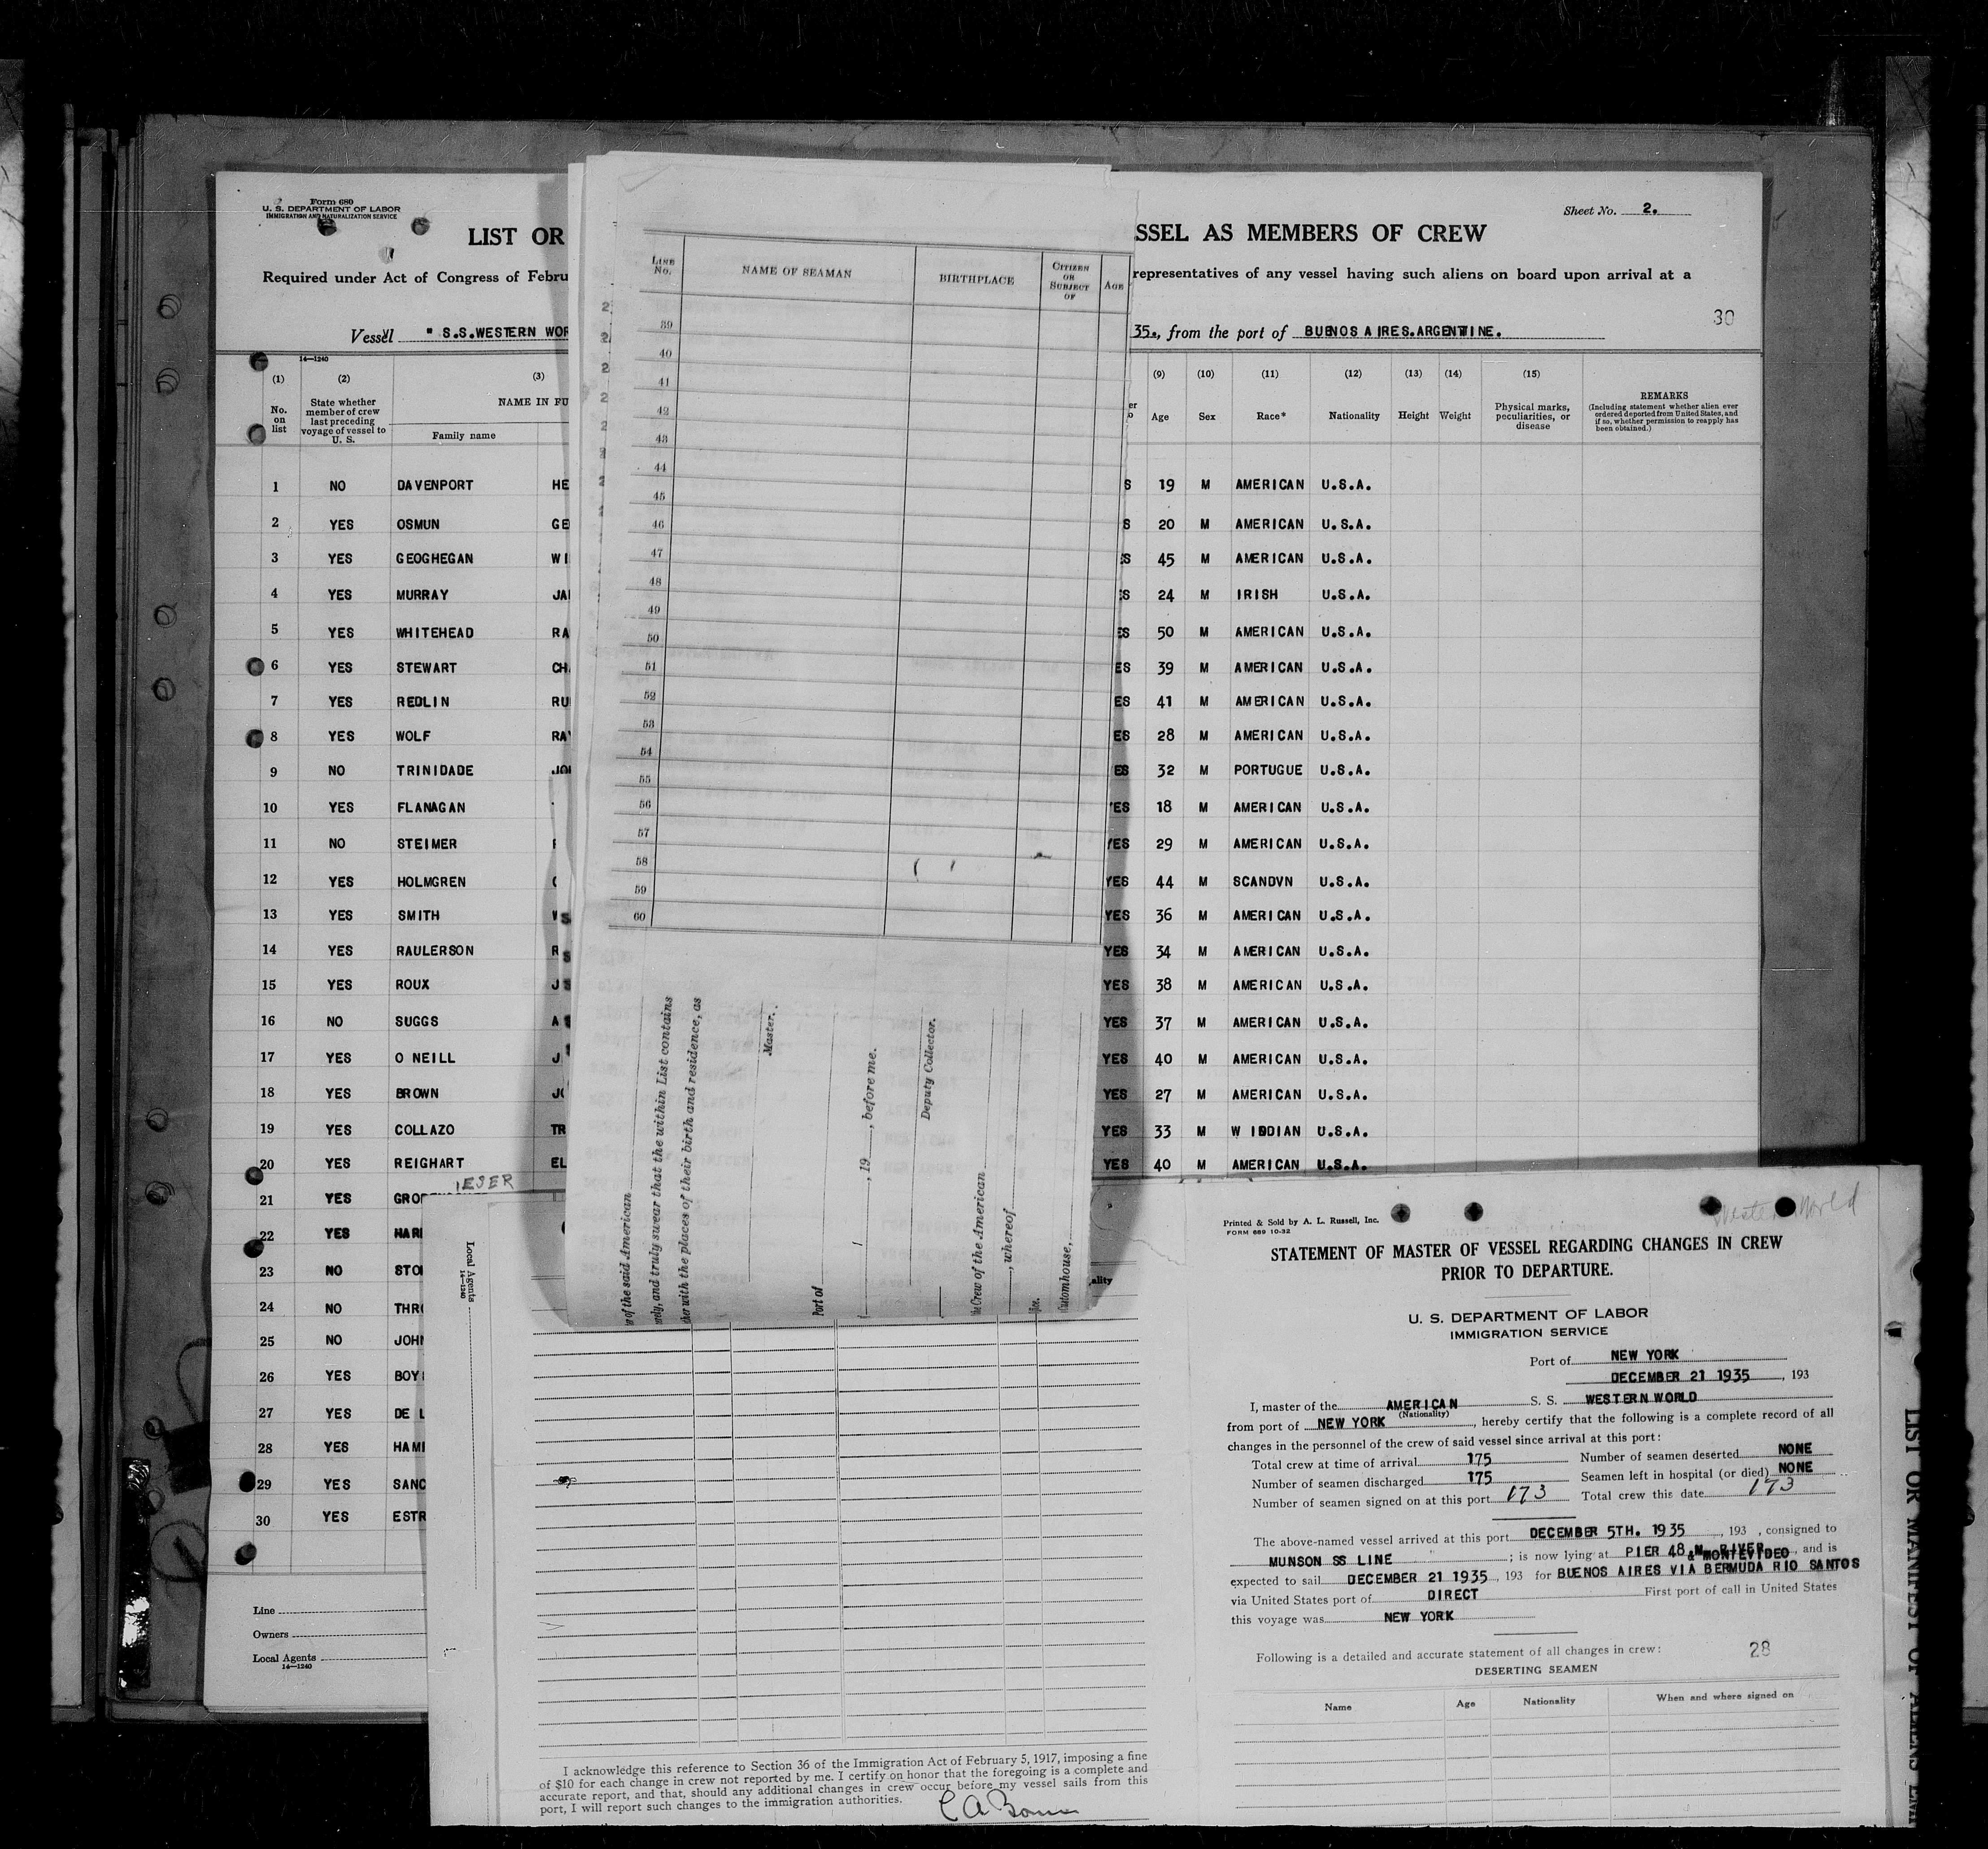 Form 680
U. S. DEPARTMENT OF LABOR
IMMIGRATION AND NATURALIZATION SERVICE
Sheet No. 2.
LIST OR
SSEL AS MEMBERS OF CREW
Required under Act of Congress of Febru
representatives of any vessel having such aliens on board upon arrival at a
30
Vessel " S.S.WESTERN WOR
35., from the port of BUENOS AIRES.ARGENTINE.
14—1240
(1) (2) (3) (9) (10) (11) (12) (13) (14) (15)
No. on list
State whether member of crew last preceding voyage of vessel to U. S.
NAME IN FU
Family name
Age Sex Race* Nationality Height Weight
Physical marks, peculiarities, or disease
REMARKS
(Including statement whether alien ever ordered deported from United States, and if so, whether permission to reapply has been obtained.)
1 NO DAVENPORT HE S 19 M AMERICAN U.S.A.
2 YES OSMUN GE S 20 M AMERICAN U.S.A.
3 YES GEOGHEGAN WI ES 45 M AMERICAN U.S.A.
4 YES MURRAY JA ES 24 M IRISH U.S.A.
5 YES WHITEHEAD RA ES 50 M AMERICAN U.S.A.
6 YES STEWART CH ES 39 M AMERICAN U.S.A.
7 YES REDLIN RU ES 41 M AMERICAN U.S.A.
8 YES WOLF RA ES 28 M AMERICAN U.S.A.
9 NO TRINIDADE JO ES 32 M PORTUGUE U.S.A.
10 YES FLANAGAN YES 18 M AMERICAN U.S.A.
11 NO STEIMER YES 29 M AMERICAN U.S.A.
12 YES HOLMGREN YES 44 M SCANDVN U.S.A.
13 YES SMITH YES 36 M AMERICAN U.S.A.
14 YES RAULERSON R YES 34 M AMERICAN U.S.A.
15 YES ROUX J YES 38 M AMERICAN U.S.A.
16 NO SUGGS A YES 37 M AMERICAN U.S.A.
17 YES O NEILL J YES 40 M AMERICAN U.S.A.
18 YES BROWN JO YES 27 M AMERICAN U.S.A.
19 YES COLLAZO TR YES 33 M W INDIAN U.S.A.
20 YES REIGHART EL YES 40 M AMERICAN U.S.A.
21 YES GRO ESER
22 YES HAR
23 NO STO
24 NO THR
25 NO JOH
26 YES BOY
27 YES DE L
28 YES HAM
29 YES SANC
30 YES ESTR
Line
Owners
Local Agents
14—1240
LINE No. NAME OF SEAMAN BIRTHPLACE CITIZEN OR SUBJECT OF AGE
39
40
41
42
43
44
45
46
47
48
49
50
51
52
53
54
55
56
57
58
59
60
of the said American
ely, and truly swear that the within List contains
ther with the places of their birth and residence, as
Master.
Port of
, 19 , before me.
Deputy Collector.
he Crew of the American
, whereof
Customhouse,
Local Agents
14—1240
ality
I acknowledge this reference to Section 36 of the Immigration Act of February 5, 1917, imposing a fine
of $10 for each change in crew not reported by me. I certify on honor that the foregoing is a complete and
accurate report, and that, should any additional changes in crew occur before my vessel sails from this
port, I will report such changes to the immigration authorities.
Western World
Printed & Sold by A. L. Russell, Inc.
FORM 689 10-32
STATEMENT OF MASTER OF VESSEL REGARDING CHANGES IN CREW
PRIOR TO DEPARTURE.
U. S. DEPARTMENT OF LABOR
IMMIGRATION SERVICE
Port of NEW YORK
DECEMBER 21 1935, 193
I, master of the AMERICAN S. S. WESTERN WORLD
(Nationality)
from port of NEW YORK, hereby certify that the following is a complete record of all
changes in the personnel of the crew of said vessel since arrival at this port:
Total crew at time of arrival 175 Number of seamen deserted NONE
Number of seamen discharged 175 Seamen left in hospital (or died) NONE
Number of seamen signed on at this port 173 Total crew this date 173
The above-named vessel arrived at this port DECEMBER 5TH. 1935, 193 , consigned to
MUNSON SS LINE ; is now lying at PIER 48 N. RIVER, and is
& MONTEVIDEO
expected to sail DECEMBER 21 1935, 193 for BUENOS AIRES VIA BERMUDA RIO SANTOS
via United States port of DIRECT First port of call in United States
this voyage was NEW YORK
Following is a detailed and accurate statement of all changes in crew:
28
DESERTING SEAMEN
Name Age Nationality When and where signed on
LIST OR MANIFEST OF ALIENS EM